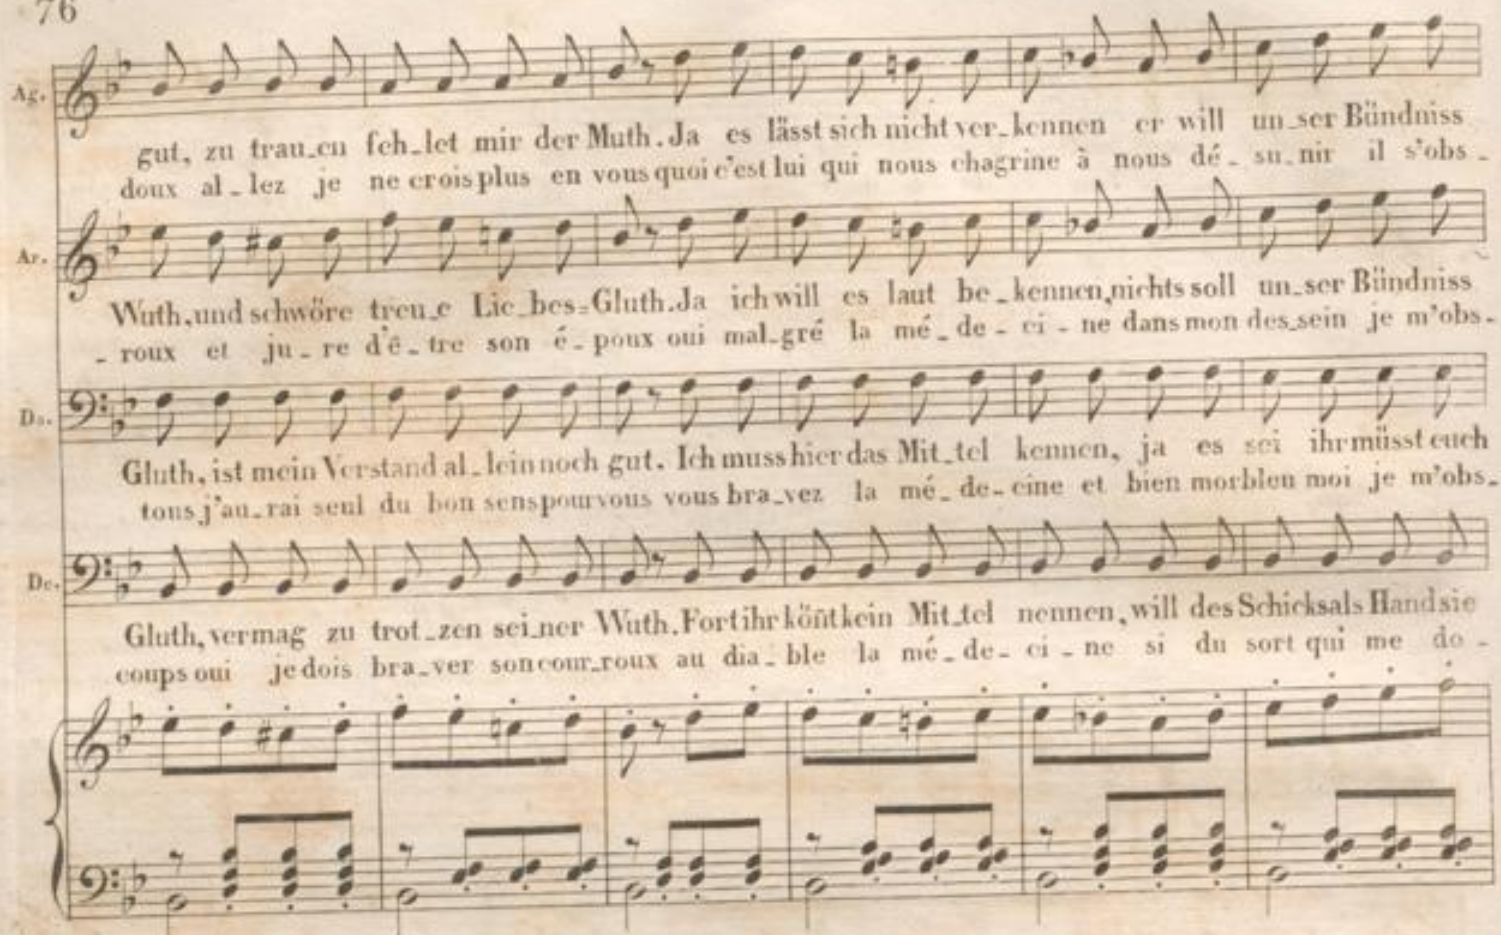 76
Ag.
gut, zu trau_en feh_let mir der Muth. Ja es lässt sich nicht ver_kennen er will un_ser Bündniss
doux al_lez je ne crois plus en vous quoi c'est lui qui nous chagrine à nous dé_su_nir il s'obs_
Ar.
Wuth, und schwöre treu_e Lie_bes=Gluth. Ja ich will es laut be_kennen, nichts soll un_ser Bündniss
_roux et ju_re d'ê_tre son é_poux oui mal_gré la mé_de_ci_ne dans mon des_sein je m'obs_
Do.
Gluth, ist mein Verstand al_lein noch gut. Ich muss hier das Mit_tel kennen, ja es sei ihr müsst euch
tous j'au_rai seul du bon sens pour vous vous bra_vez la mé_de_cine et bien morbleu moi je m'obs_
De.
Gluth, vermag zu trot_zen sei_ner Wuth. Fort ihr kön̄t kein Mit_tel nennen, will des Schicksals Hand sie
coups oui je dois bra_ver son cour_roux au dia_ble la mé_de_ci_ne si du sort qui me do_